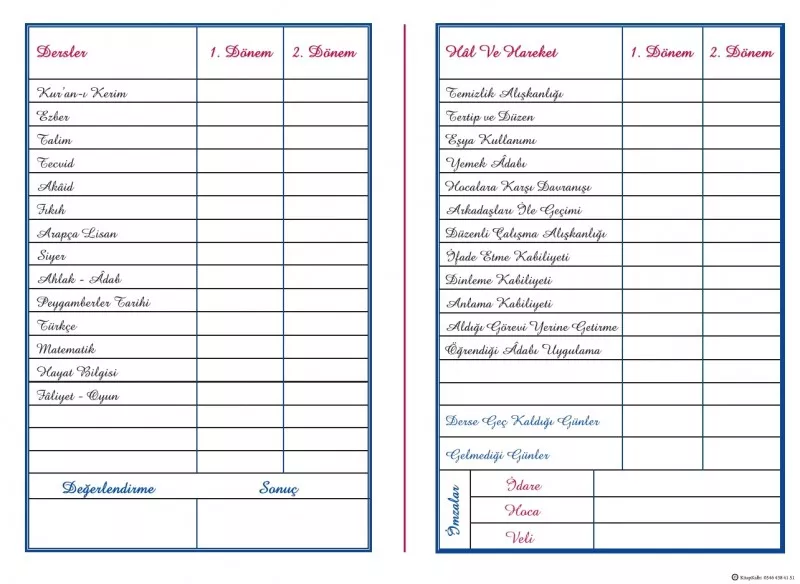 Dersler 1. Dönem 2. Dönem
Kur'an-ı Kerim
Ezber
Talim
Tecvid
Akâid
Fıkıh
Arapça Lisan
Siyer
Ahlak - Âdab
Peygamberler Tarihi
Türkçe
Matematik
Hayat Bilgisi
Fâliyet - Oyun
Değerlendirme Sonuç
Hâl Ve Hareket 1. Dönem 2. Dönem
Temizlik Alışkanlığı
Tertip ve Düzen
Eşya Kullanımı
Yemek Âdabı
Hocalara Karşı Davranışı
Arkadaşları İle Geçimi
Düzenli Çalışma Alışkanlığı
İfade Etme Kabiliyeti
Dinleme Kabiliyeti
Anlama Kabiliyeti
Aldığı Görevi Yerine Getirme
Öğrendiği Âdabı Uygulama
Derse Geç Kaldığı Günler
Gelmediği Günler
İmzalar
İdare
Hoca
Veli